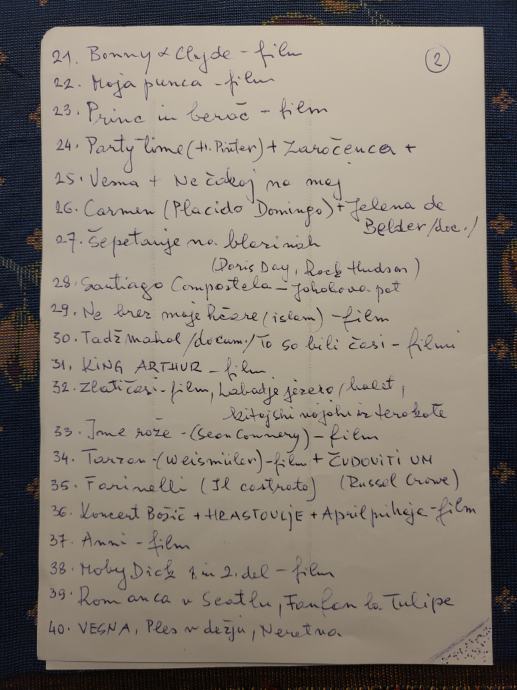 2
21. Bonny & Clyde - film
22. Moja punca - film
23. Princ in berač - film
24. Party time (H. Pinter) + Zaročenca +
25. Vesna + Ne čakaj na maj
26. Carmen (Placido Domingo) + Jelena de
Belder /doc./
27. Šepetanje na blazinah
(Doris Day, Rock Hudson)
28. Santiago Compostela - Jakobova pot
29. Ne brez moje hčere (islam) - film
30. Tadž mahal /docum./ To so bili časi - filmi
31. KING ARTHUR - film
32. Zlati časi - film, Labodje jezero /balet,
kitajski vojaki iz terakote
33. Ime rože - (Sean Connery) - film
34. Tarzan - (Weismüler) - film + ČUDOVITI UM
35. Farinelli (Il castrato) (Russel Crowe)
36. Koncert Božič + HRASTOVLJE + April prihaja - film
37. Anni - film
38. Moby Dick 1 in 2. del - film
39. Romanca v Seatlu, Fanfan la Tulipe
40. VESNA, Ples v dežju, Neretva